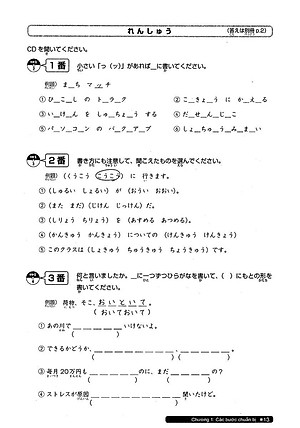 れんしゅう (答えは別冊p.2)
CDを聞いてください。
1番 小さい「っ(ッ)」があれば__に書いてください。
例題) ま__ち マ_ッ_チ
① ひ__こ__し の ト__ラ__ク ② こ__きょ__う に か__え__る
③ い__け__ん を しゅ__ちょ__う する ④ だ__せ__ん__じ__こ
⑤ パ__ソ__コ__ン の バ__ク__ア__プ ⑥ しょ__ちゅ__う__み__ま__い
2番 書き方にも注意して、聞こえたものを選んでください。
例題) (くうこう こうこう) に 行きます。
① (しゅるい しょるい) が (おうい おおい)。
② (また まだ) (じけん じっけん) だ。
③ (しりょう ちりょう) を (あすめる あつめる)。
④ (かんきゅう かんきょう) についての (けんきゅう けんきょう)
⑤ このクラスは (しょきゅう ちゅうきゅう ちょうきゅう) です。
3番 何と言いましたか。__に一つずつひらがなを書いて、( )にもとの形を
書いてください。
例題) 荷物、そこ、お い と い て。
(おいておいて)
① あの川で__ __ __ __ __ __いけないよ。
② できるかどうか、__ __ __ __ __ __。
③ 毎月20万円も__ __ __ __ __のに、まだ__ __ __ __の?
④ ストレスが原因__ __ __ __ __ __ __聞いたけど。
Chương 1: Các bước chuẩn bị ★13